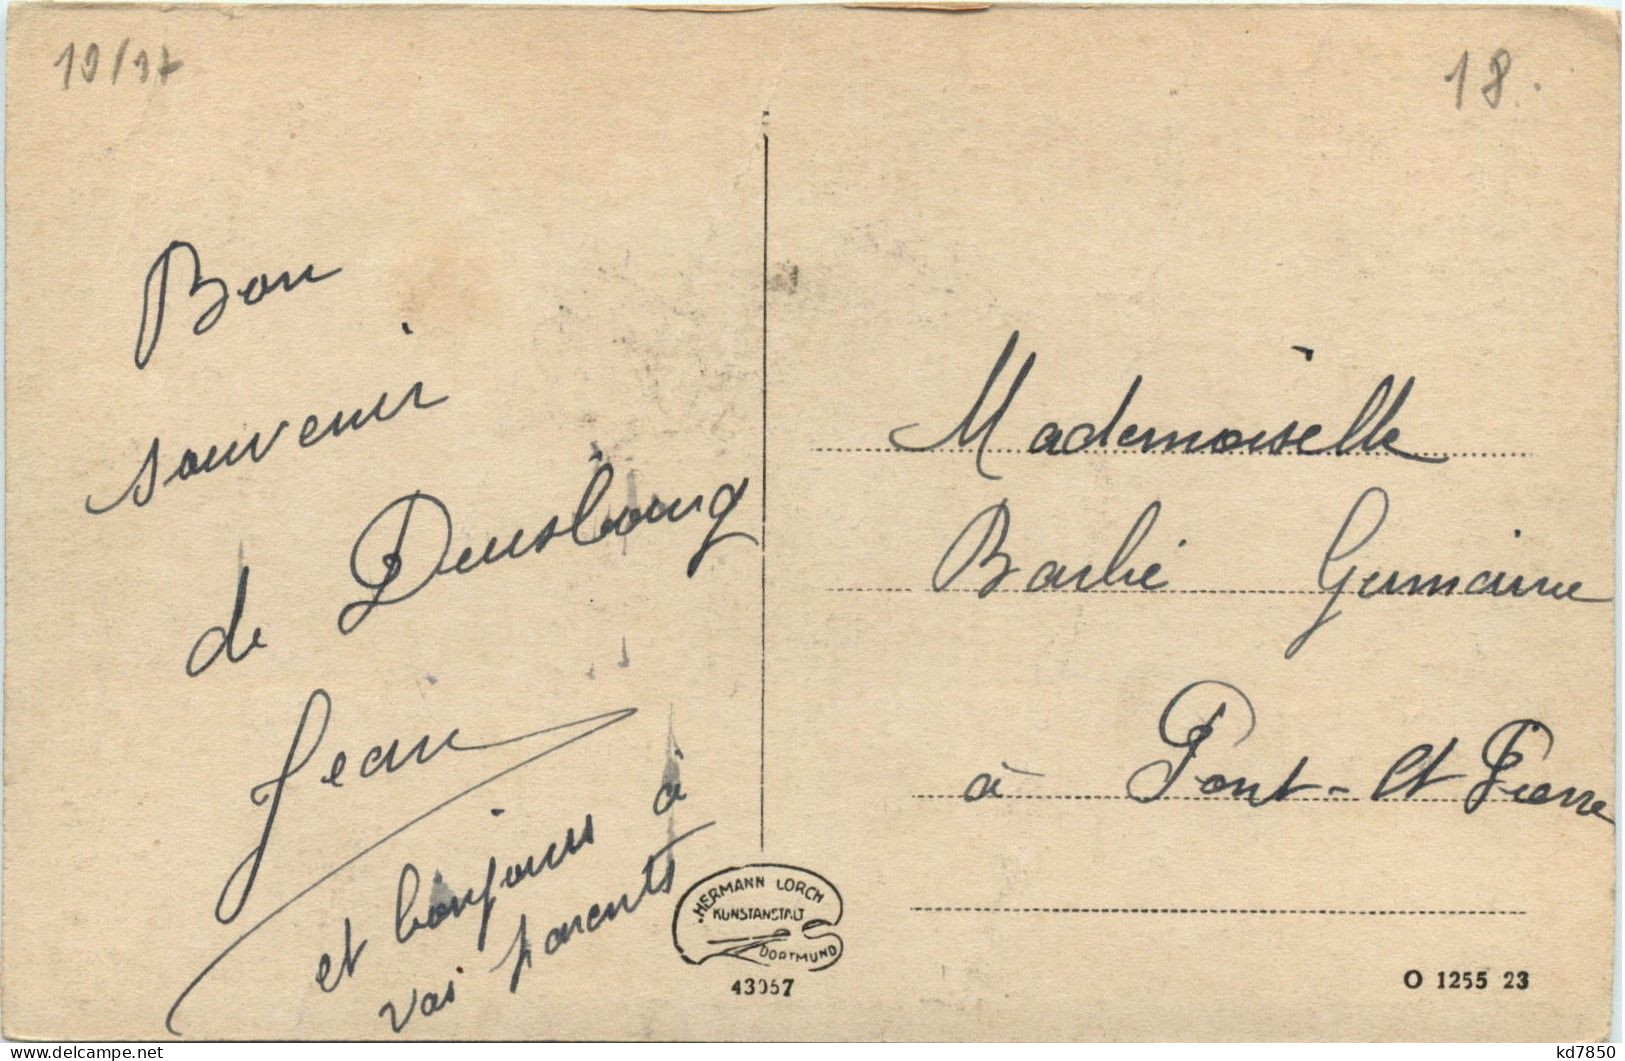 19/37
18.
Bon
souvenir
de Duisbourg
Jean
et bonjour à
vos parents
Mademoiselle
Barbé Germaine
à Pont-St Pierre
HERMANN LORCH
KUNSTANSTALT
DORTMUND
43057
O 1255 23
delcampe.net
kd7850